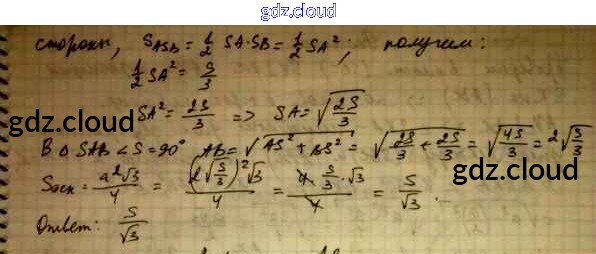 gdz.cloud
стороны, S_ASB = 1/2 SA·SB = 1/2 SA²; получим:
1/2 SA² = S/3
SA² = 2S/3 => SA = √(2S/3)
gdz.cloud
В △ SAB ∠S = 90° AB = √(AS² + BS²) = √(2S/3 + 2S/3) = √(4S/3) = 2√(S/3)
gdz.cloud
Sосн = a²√3/4 = (2√(S/3))²√3/4 = 4·S/3·√3/4 = S/√3.
Ответ: S/√3
gdz.cloud